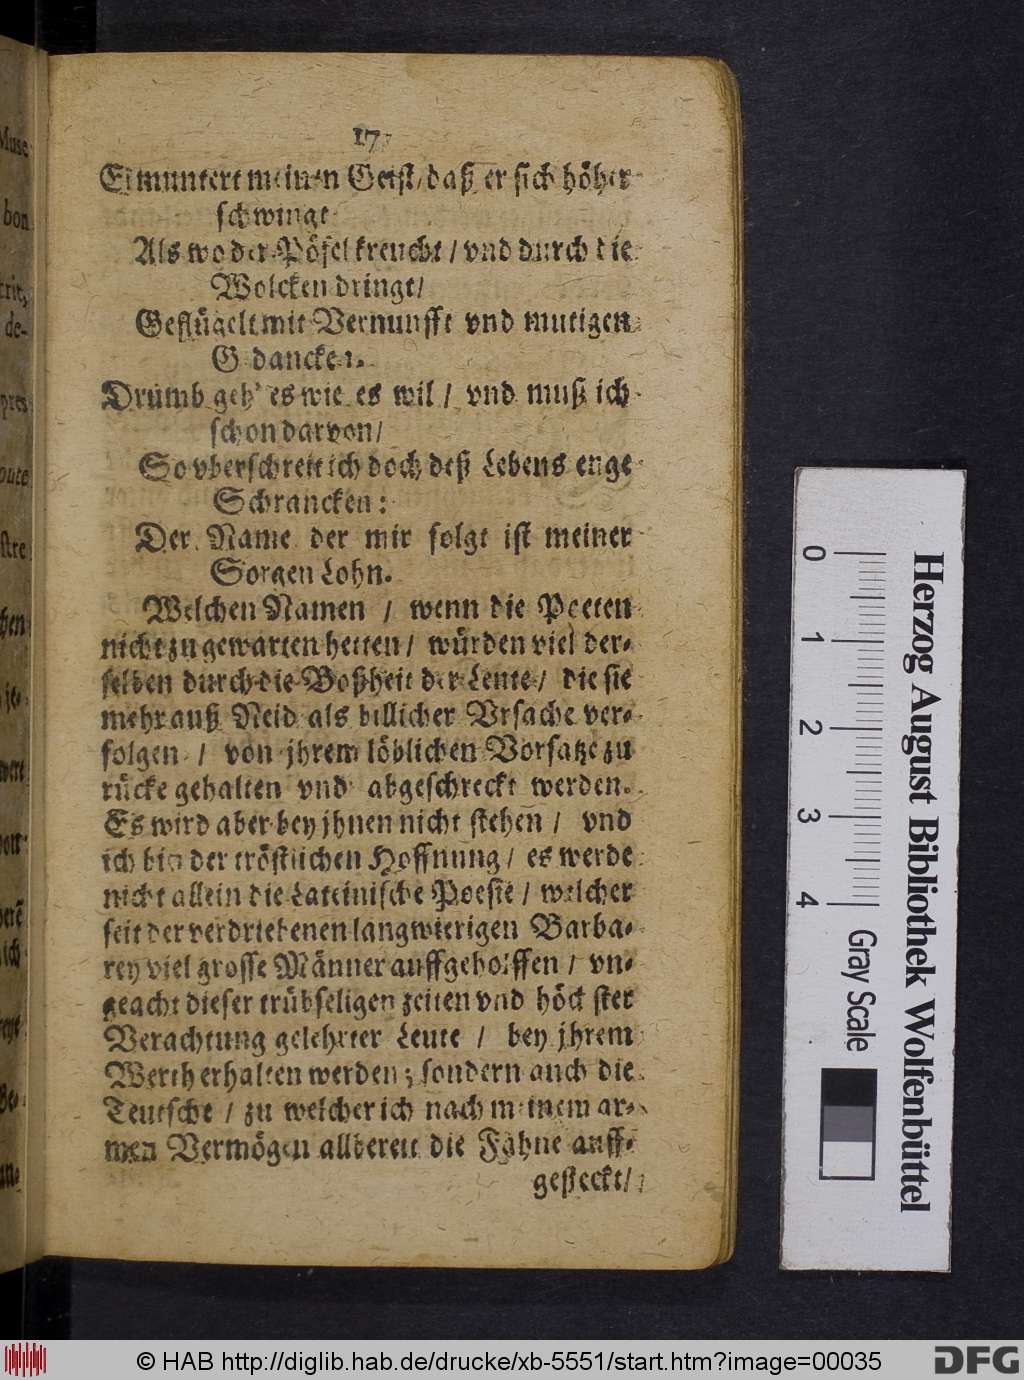 17
Ermuntert meinen Geist / daß er sich höher
schwingt
Als wo der Pöfel kreucht / vnd durch die
Wolcken dringt /
Geflügelt mit Vernunfft vnd mutigen
Gedancken.
Drumb geh' es wie es wil / vnd muß ich
schon darvon /
So vberschreit ich doch deß Lebens enge
Schrancken:
Der Name der mir folgt ist meiner
Sorgen Lohn.
Welchen Namen / wenn die Poeten
nicht zu gewarten hetten / würden viel der-
selben durch die Boßheit der Leute / die sie
mehr auß Neid als billicher Vrsache ver-
folgen / von jhrem löblichen Vorsatze zu
rücke gehalten vnd abgeschreckt werden.
Es wird aber bey jhnen nicht stehen / vnd
ich bin der tröstlichen Hoffnung / es werde
nicht allein die Lateinische Poesie / welcher
seit der verdriebenen langwierigen Barba-
rey viel grosse Männer auffgeholffen / vn-
geacht dieser trübseligen zeiten vnd höchster
Verachtung gelehrter Leute / bey jhrem
Werth erhalten werden; sondern auch die
Teutsche / zu welcher ich nach meinem ar-
men Vermögen allbereit die Fahne auff-
gesteckt /
Muse
bon
trit,
de-
pres
oute
stre
ben
je-
wert
ich
0
1
2
3
4
Gray Scale
Herzog August Bibliothek Wolfenbüttel
© HAB http://diglib.hab.de/drucke/xb-5551/start.htm?image=00035
DFG